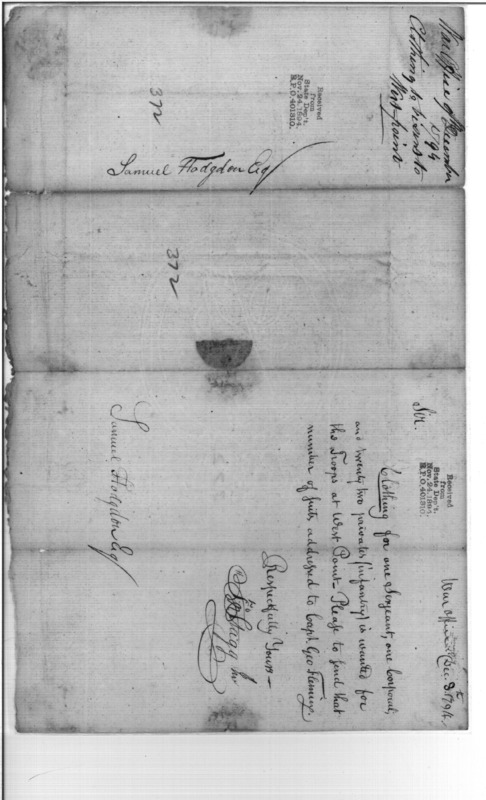 War Office 9 December
1794
Clothing to be sent to
West-point
Received
from
State Dep't,
Nov. 24, 1894,
R. P. D. 401810.
372
Samuel Hodgdon Esq
372
Received
from
State Dep't,
Nov. 24, 1894,
R. P. D. 401810.
War Office Dec. 8th 1794
Sir.
Clothing for one Sergeant, one Corporal,
and twenty two privates (infantry) is wanted for
the Troops at West Point— Please to send that
number of suits addressed to Capt. Geo Fleming.
Respectfully Yours—
Jno Stagg Jr
Samuel Hodgdon Esq